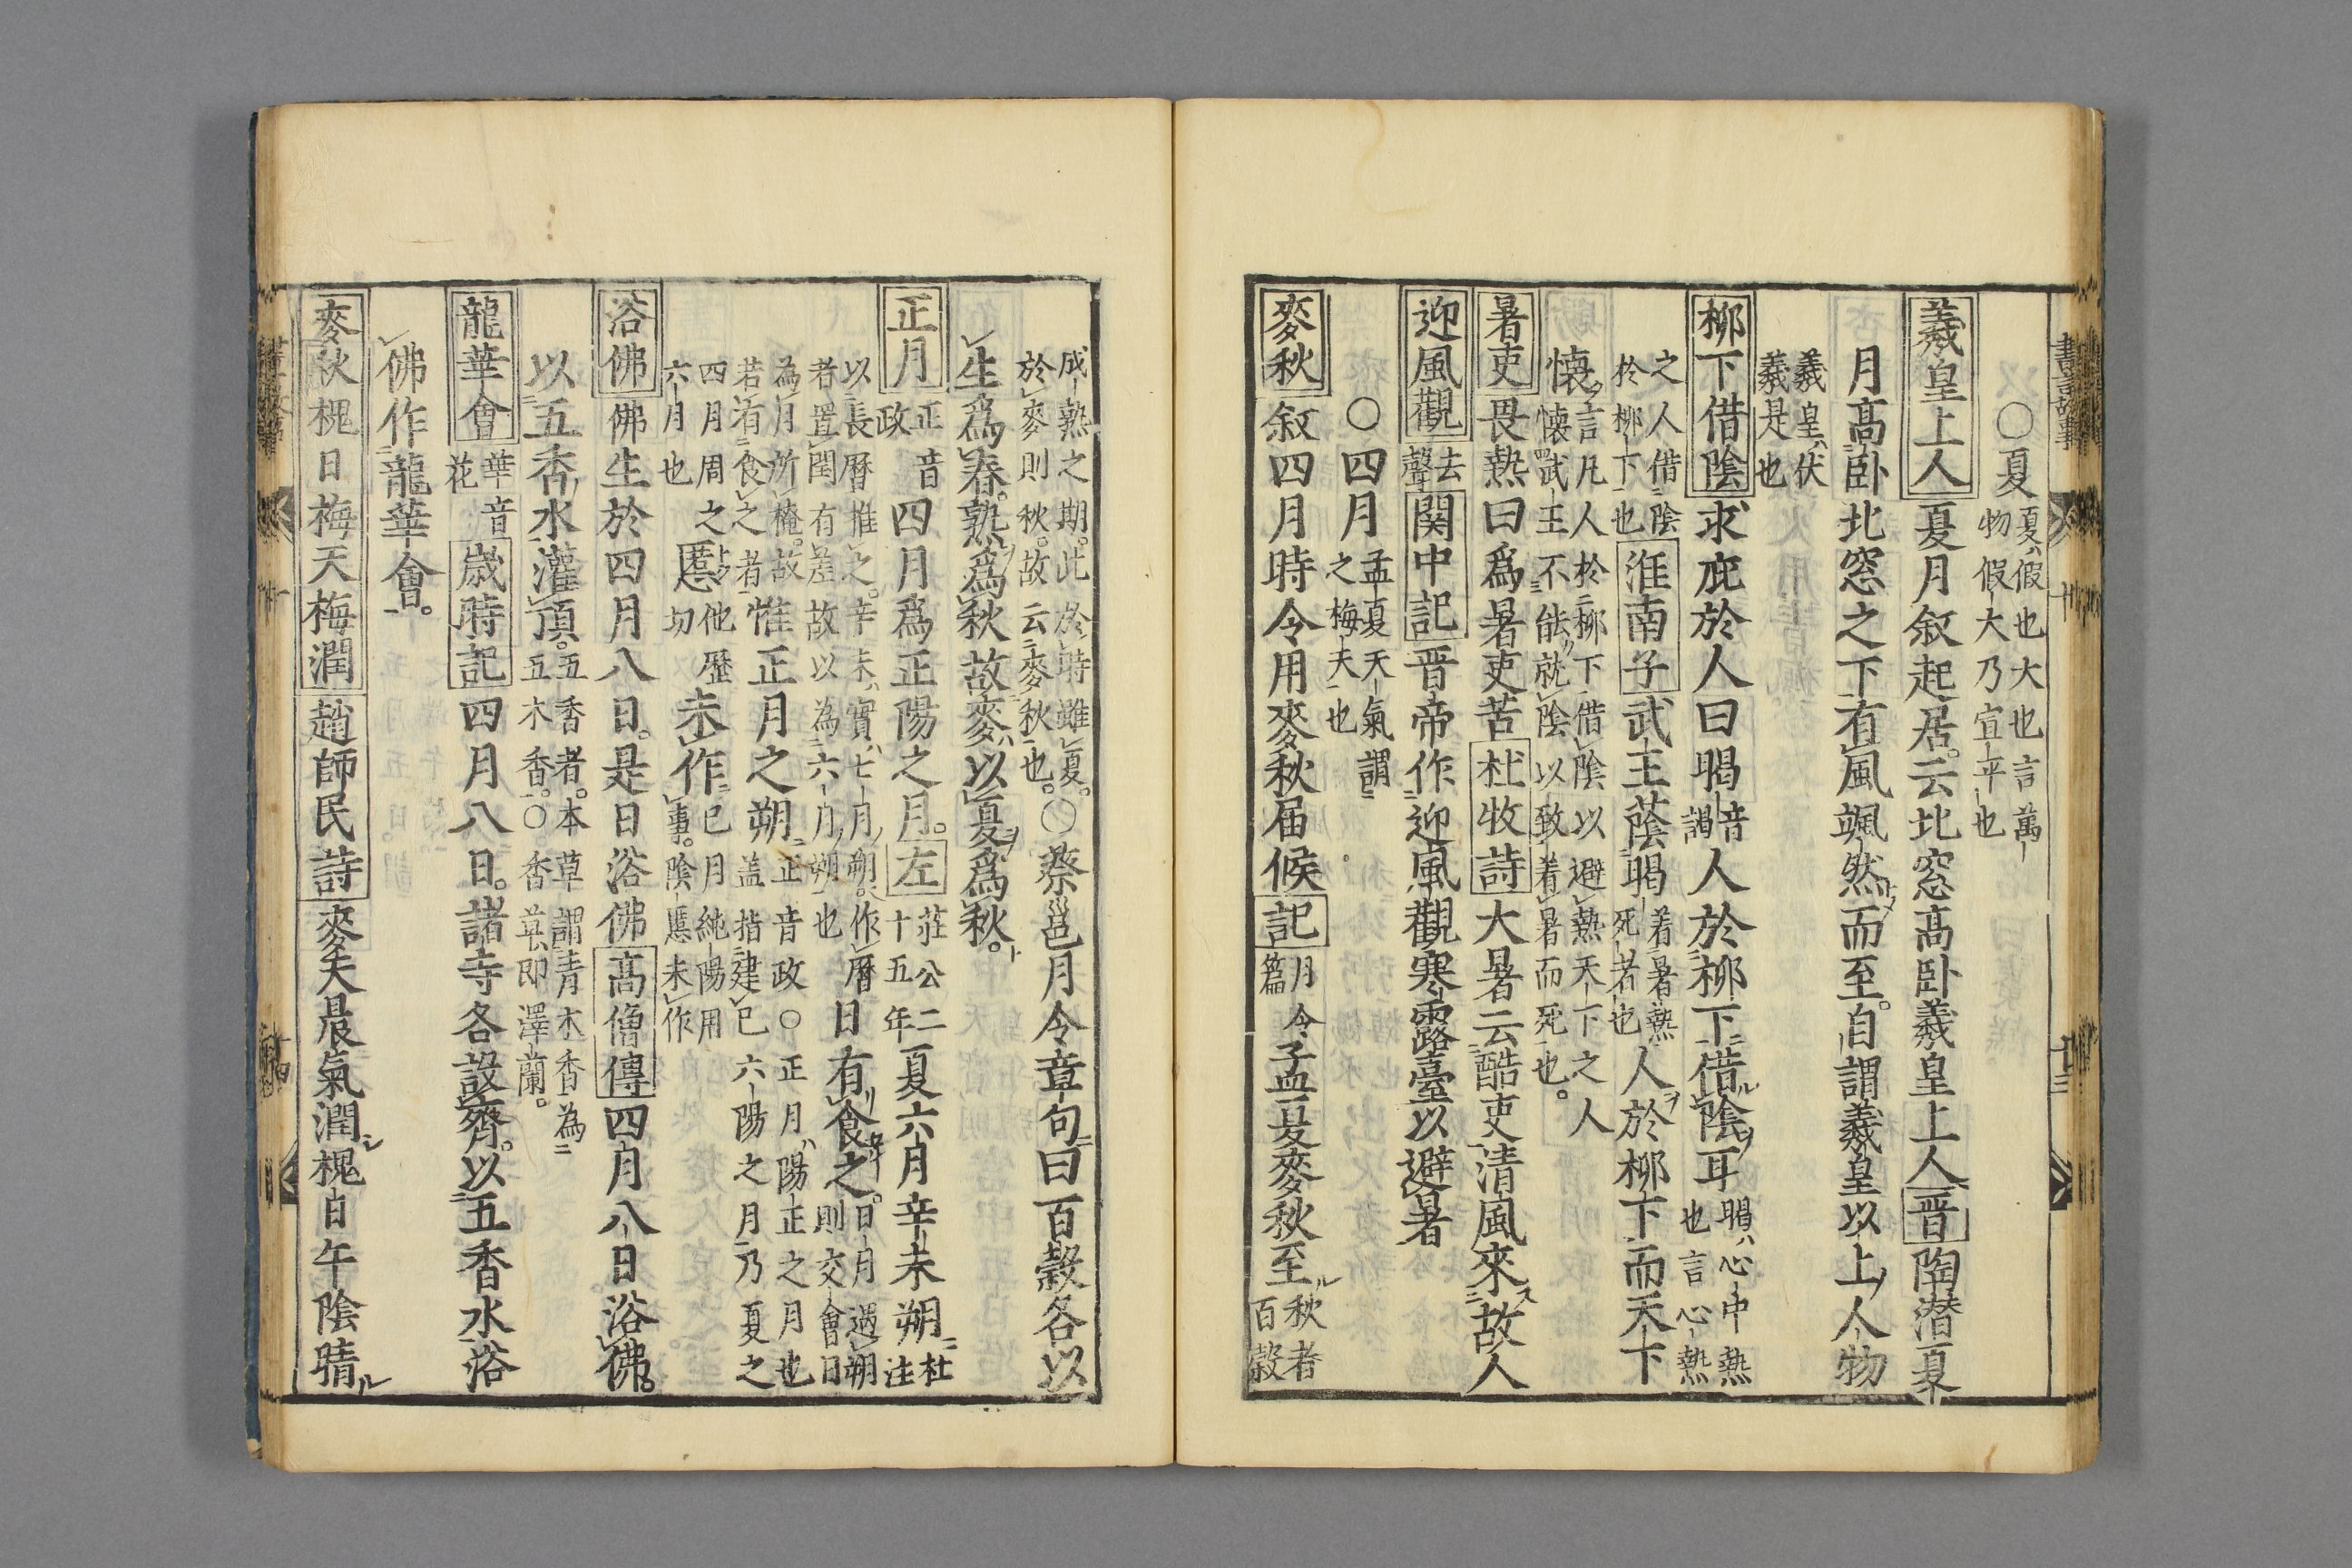 ○夏 夏假也大也言萬物假大乃宣平也
羲皇上人 夏月叙起居云北窓高卧羲皇上人 晋 陶潜夏
月高卧北窓之下有風颯然而至自謂羲皇以上人物
羲皇伏羲是也
柳下借陰 求庇於人曰暍音謁人於柳下借陰耳 暍心中熱也言心熱
之人借陰於柳下也 淮南子 武王蔭暍 着暑熱死者也 人於柳下而天下
懐 言凡人於柳下借陰以避熱天下之人懐武王不能就陰以致着暑而死也
暑吏 畏熱曰爲暑吏苦 杜牧詩 大暑云酷吏清風來故人
迎風觀 去聲 関中記 晋帝作迎風觀寒露臺以避暑
○四月 孟夏天氣謂之梅天也
麥秋 叙四月時令用麥秋届候 記 月令篇 孟夏麥秋至 秋者百穀
成熟之期此於時雖夏於麥則秋故云麥秋也○蔡邕月令章句曰百穀各以
生爲春熟爲秋故麥以夏爲秋
正月 正音政 四月爲正陽之月 左 莊公二十五年 夏六月辛未朔 杜注
以長曆推之辛未實七月朔作曆者置閏有差故以為六月朔也 日有食之 日月遇朔則交會日
為月所掩故若有食之者 惟正月之朔 正音政○正月陽正之月也盖指建巳六陽之月乃夏之
四月周之六月也 慝 他歴切 未作 巳月純陽用事陰慝未作
浴佛 佛生於四月八日是日浴佛 高僧傳 四月八日浴佛
以五香水灌頂 五香者本草謂青木香為五木香○香草即澤蘭
龍華會 華音花 歳時記 四月八日諸寺各設齊以五香水浴
佛作龍華會
麥秋槐日梅天梅潤 趙師民詩 麥天晨氣潤槐日午陰晴